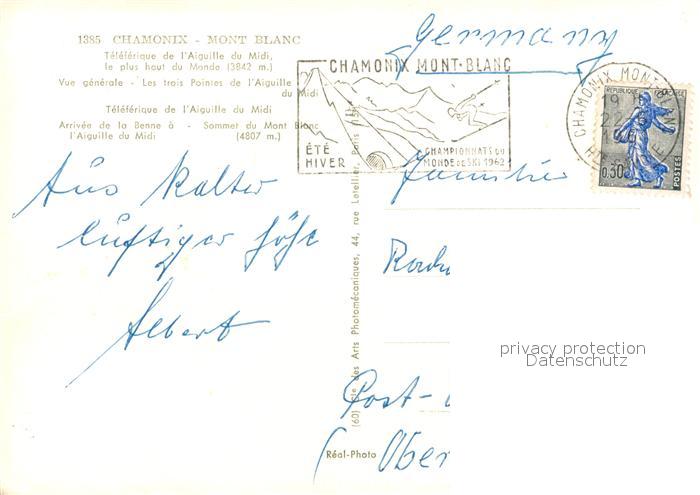 1385 CHAMONIX - MONT BLANC
Téléférique de l'Aiguille du Midi,
le plus haut du Monde (3842 m.)
Vue générale - Les trois Pointes de l'Aiguille
du Midi
Téléférique de l'Aiguille du Midi
Arrivée de la Benne à - Sommet du Mont Blanc
l'Aiguille du Midi (4807 m.)
Aus kalter
luftiger Höhe
Albert
(60) des Arts Photomécaniques, 44, rue Letellier, Paris (15e)
Réal-Photo
Germany
CHAMONIX MONT-BLANC
ÉTÉ
HIVER
CHAMPIONNATS DU
MONDE DE SKI 1962
CHAMONIX MONT-BL
19
22
RÉPUBLIQUE
0,30
POSTES
Familie
Post-
Ober
privacy protection
Datenschutz